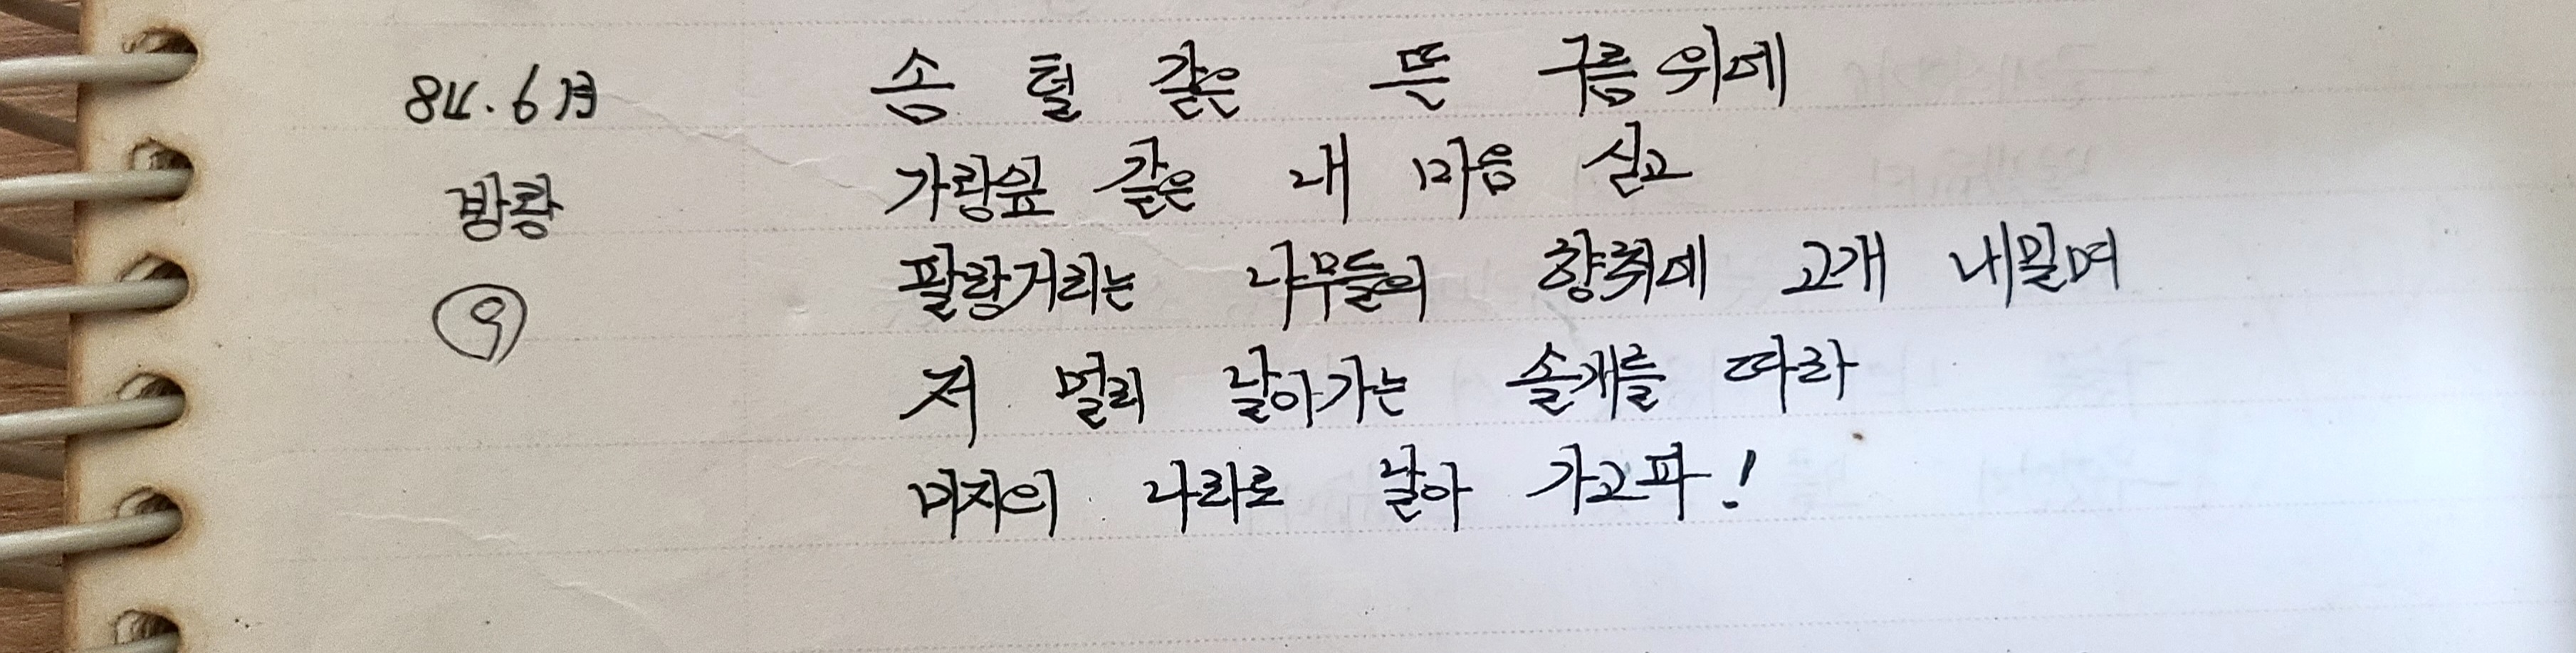 84. 6月
방황
⑨
솜 털 같은 뜬 구름위에
가랑잎 같은 내 마음 싣고
팔랑거리는 나무들의 향취에 고개 내밀며
저 멀리 날아가는 솔개를 따라
미지의 나라로 날아 가고파!